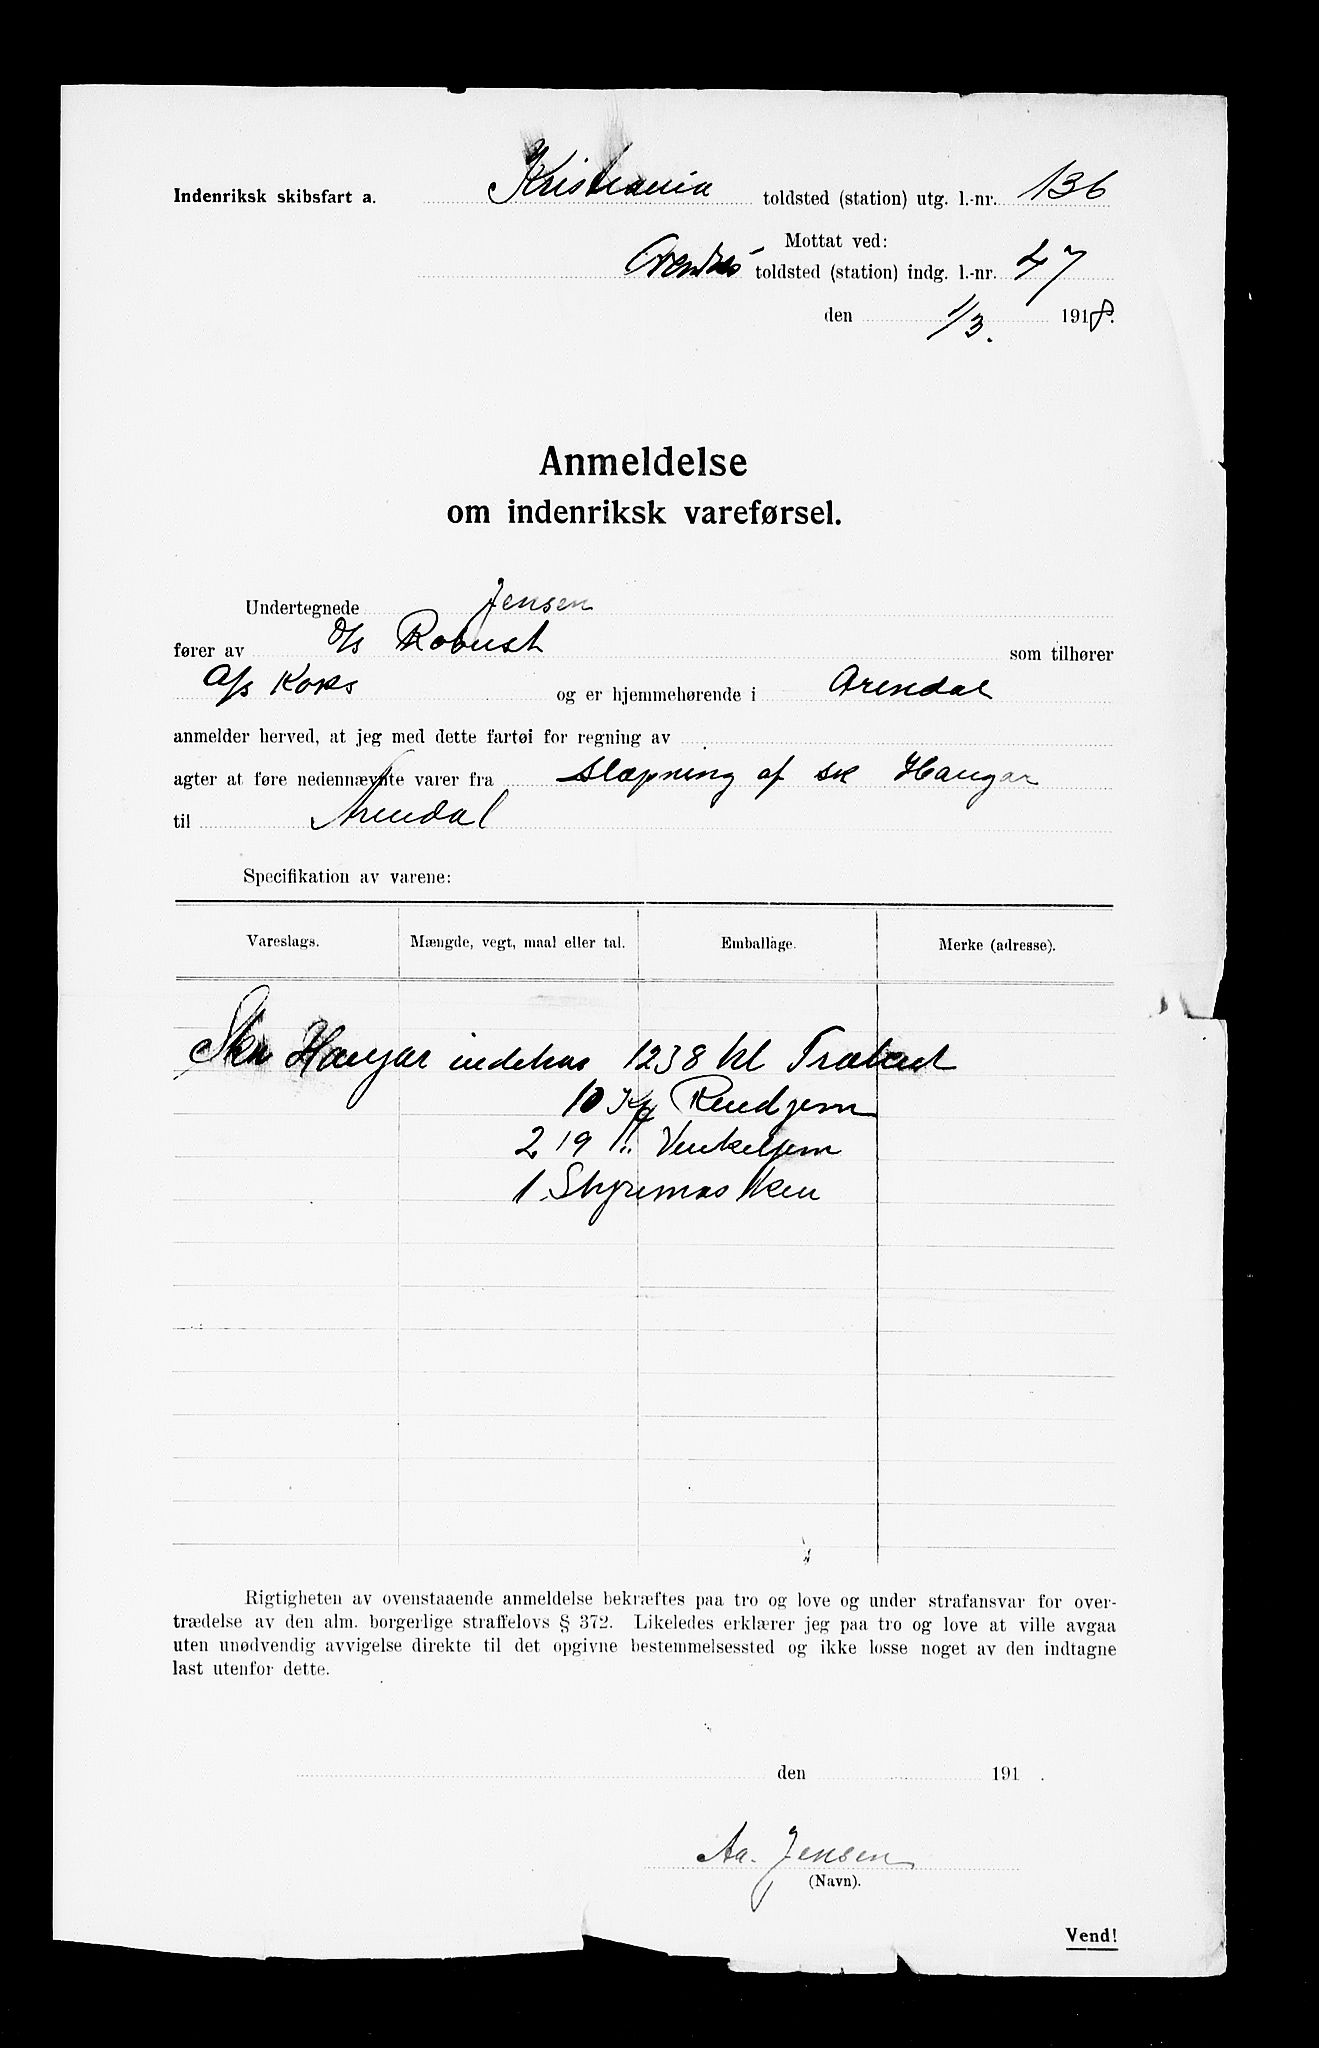 Indenriksk skibsfart a. Kristiania toldsted (station) utg. l.-nr. 136
Mottat ved:
Arendals toldsted (station) indg. l.-nr. 47
den 1/3. 1918.
Anmeldelse
om indenriksk vareførsel.
Undertegnede Jensen
fører av D/s Robust som tilhører
A/s Koks og er hjemmehørende i Arendal
anmelder herved, at jeg med dette fartøi for regning av
agter at føre nedennævnte varer fra Slæpning af sk Haugar
til Arendal
Specifikation av varene:
Vareslags. Mængde, vegt, maal eller tal. Emballage. Merke (adresse).
Sk Haugar indehar 1238 hl
10 Kg Rundjern
219 " Vinkeljern
1 Styremaskken
Rigtigheten av ovenstaaende anmeldelse bekræftes paa tro og love og under strafansvar for over-
trædelse av den alm. borgerlige straffelovs § 372. Likeledes erklærer jeg paa tro og love at ville avgaa
uten unødvendig avvigelse direkte til det opgivne bestemmelsessted og ikke losse noget av den indtagne
last utenfor dette.
den 191 .
Aa. Jensen
(Navn).
Vend!